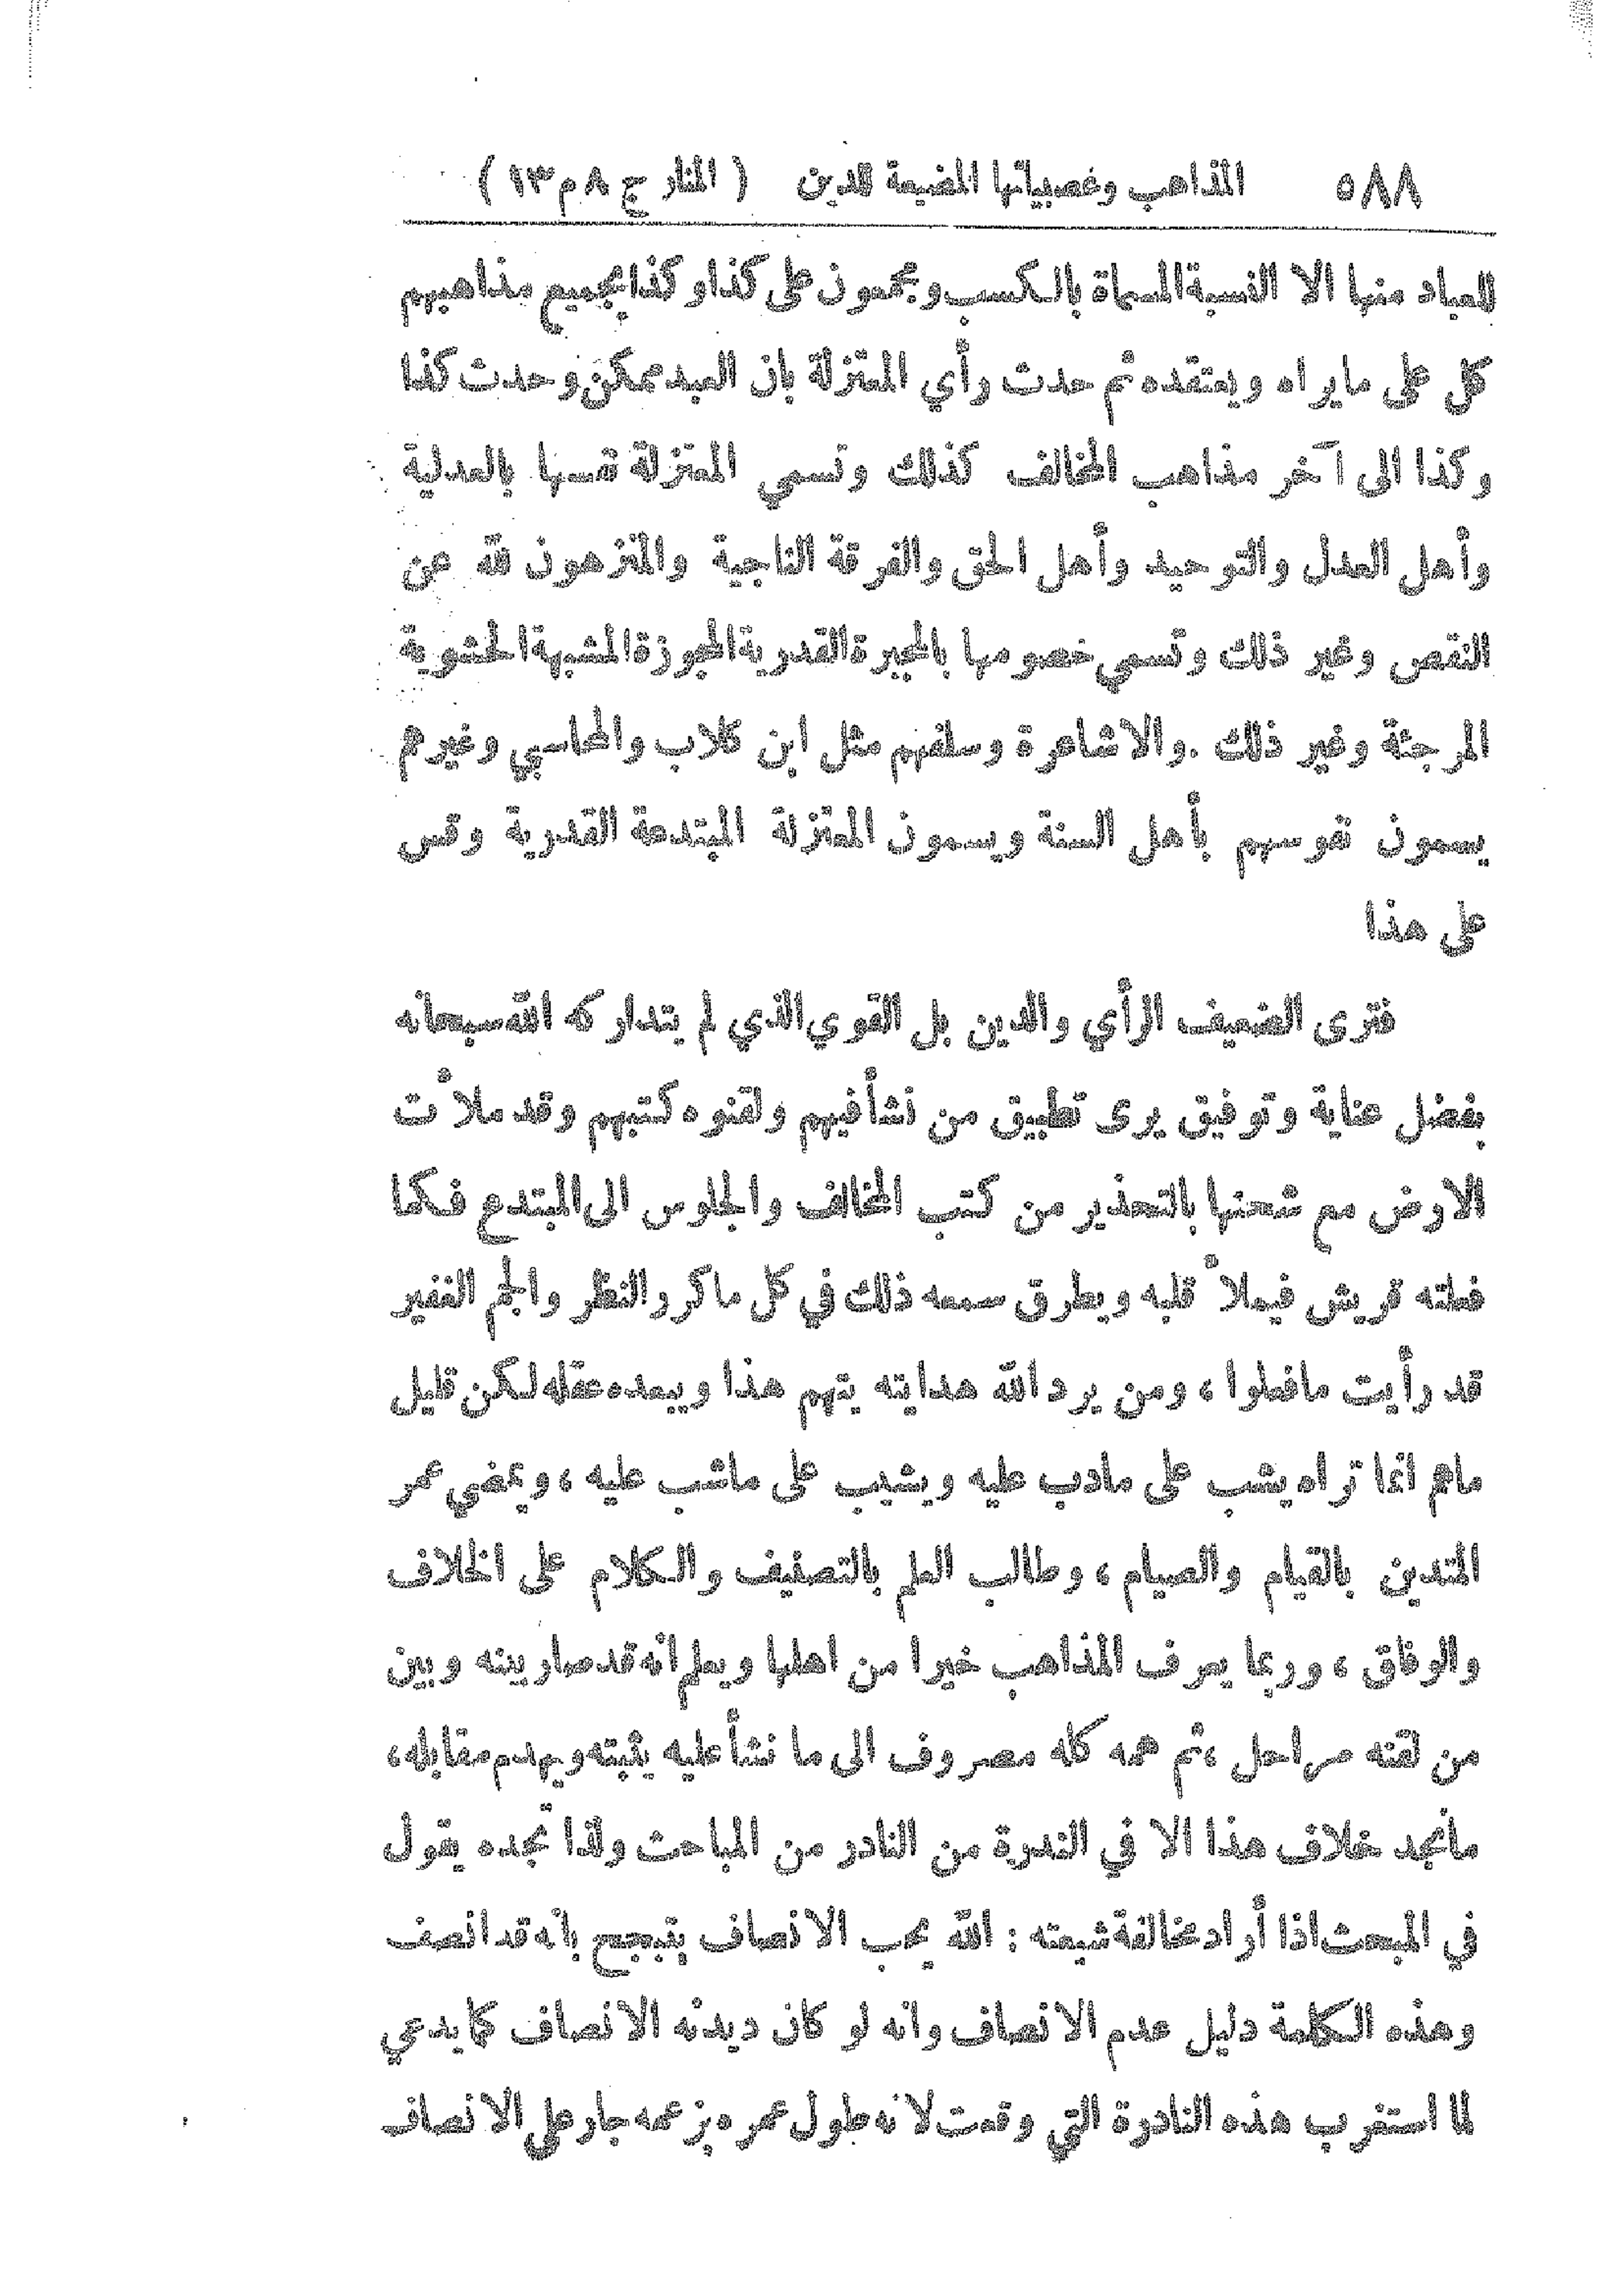 ٥٨٨ المذاهب وعصبياتها المضيعة للدين ( المنار ج ٨ م ١٣ )
للعباد منها الا النسبة المسماة بالكسب ويجمعون على كذا وكذا بجميع مذاهبهم
كل على مايراه ويعتقده ثم حدث رأي المعتزلة بان العبد ممكن وحدث كذا
وكذا الى آخر مذاهب المخالف كذلك وتسمي المعتزلة نفسها بالعدلية
وأهل العدل والتوحيد وأهل الحق والفرقة الناجية والمنزهون لله عن
النقص وغير ذلك وتسمي خصومها بالمجبرة القدرية المجوزة المشبهة الحشوية
المرجئة وغير ذلك . والاشاعرة وسلفهم مثل ابن كلاب والمحاسبي وغيرهم
يسمون نفوسهم بأهل السنة ويسمون المعتزلة المبتدعة القدرية وقس
على هذا
فترى الضعيف الرأي والدين بل القوي الذي لم يتداركه الله سبحانه
بفضل عناية وتوفيق يرى تطبيق من نشأ فيهم ولقنوه كتبهم وقد ملأت
الارض مع شحنها بالتحذير من كتب المخالف والجلوس الى المبتدع فكما
فعلته قريش فيملأ قلبه ويطرق سمعه ذلك في كل ما كرر النظر والجم الغفير
قد رأيت مافعلوا ، ومن يرد الله هدايته يتهم هذا ويبعده عقله لكن قليل
ماهم انما تراه يشب على مادب عليه ويشيب على ماشب عليه ، ويمضي عمر
المتدين بالقيام والصيام ، وطالب العلم بالتصنيف والكلام على الخلاف
والوفاق ، وربما يعرف المذاهب خيرا من اهلها ويعلم انه قد صار بينه وبين
من لقنه مراحل ، ثم همه كله مصروف الى ما نشأ عليه يثبته ويهدم مقابله ،
ماتجد خلاف هذا الا في الندرة من النادر من المباحث ولذا تجده يقول
في المبحث اذا أراد مخالفة شيعته : الله يحب الانصاف يتبجح بانه قد انصف
وهذه الكلمة دليل عدم الانصاف وانه لو كان ديدنه الانصاف كما يدعي
لما استغرب هذه النادرة التي وقعت لانه طول عمره بزعمه جار على الانصاف